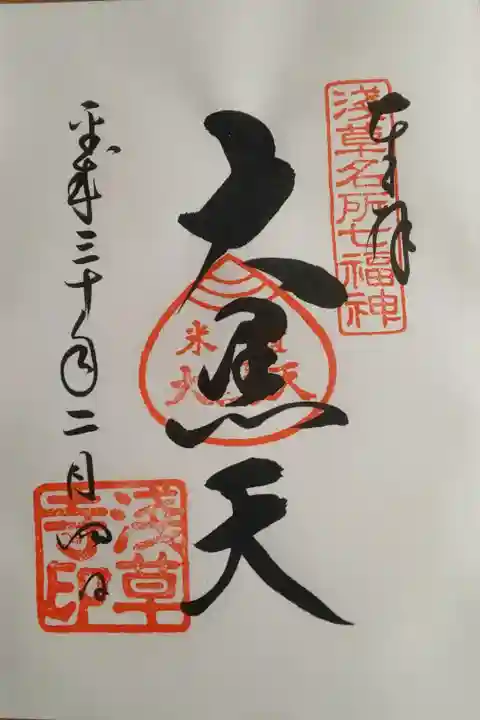 奉拝
浅草名所七福神
大黒天
平成三十年二月四日
浅草
寺印